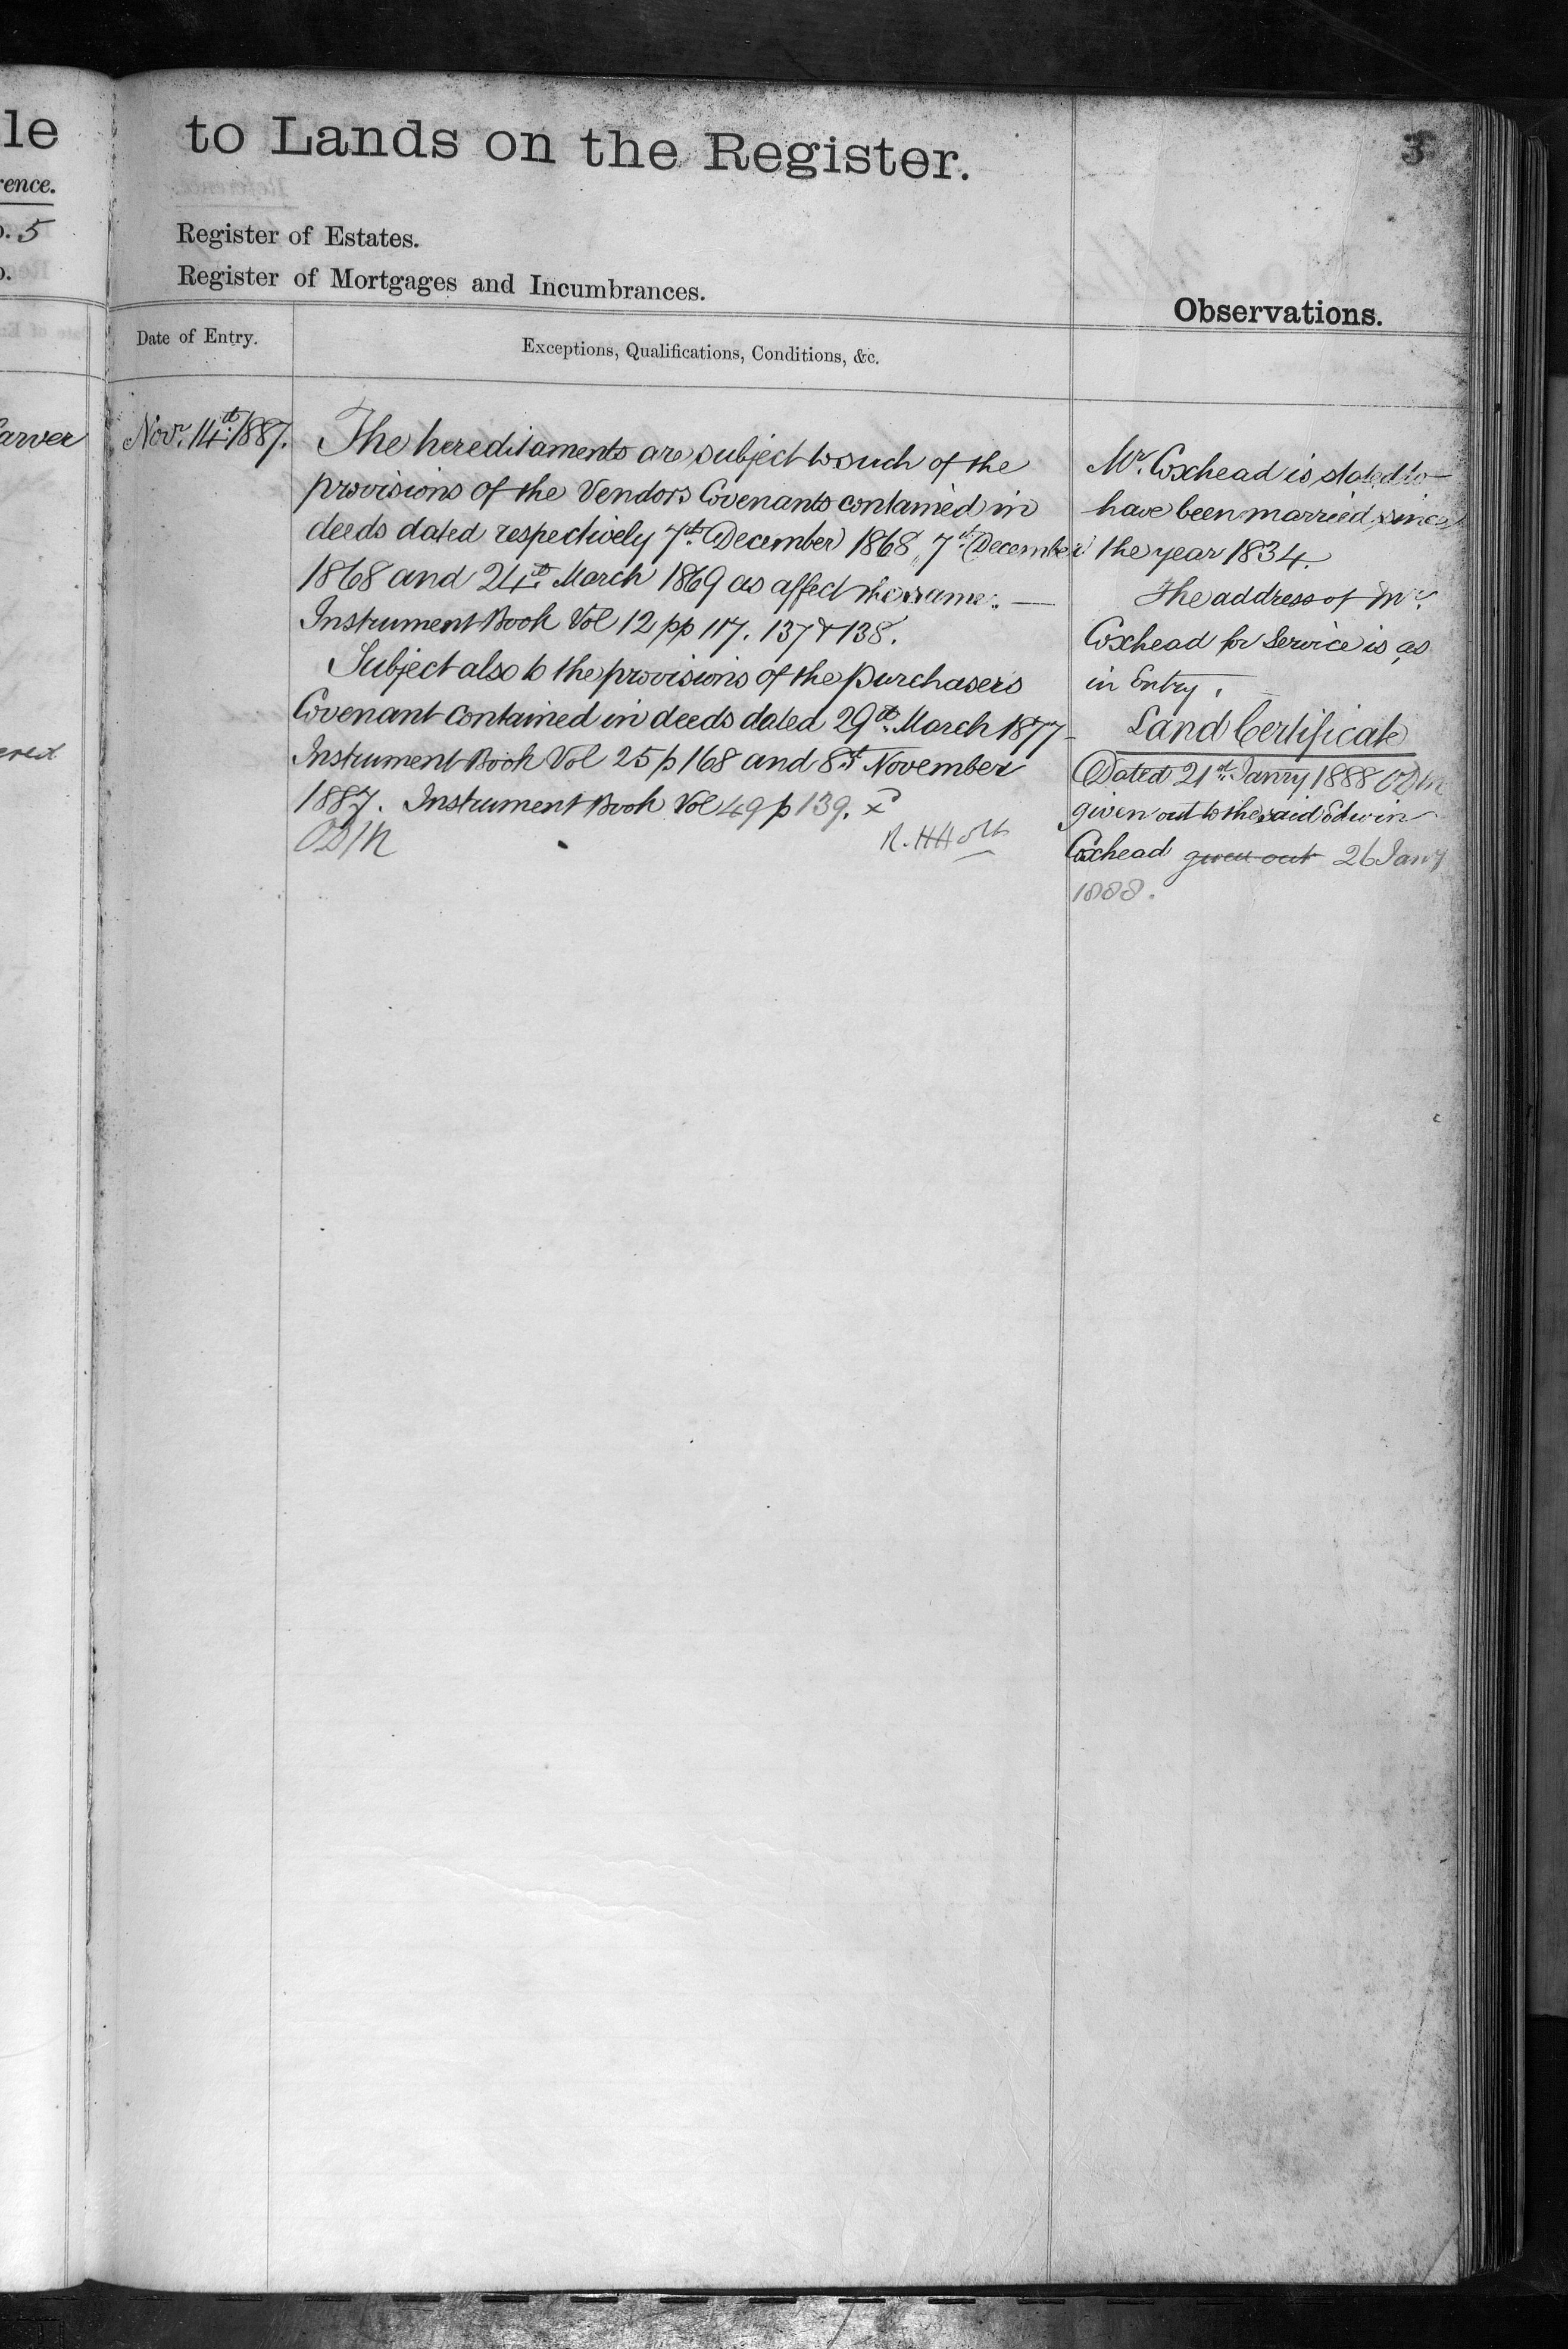 le
rence.
o. 5
o.
arver
ered
to Lands on the Register.
3
Register of Estates.
Register of Mortgages and Incumbrances.
Observations.
Date of Entry.
Exceptions, Qualifications, Conditions, &c.
Novr. 14th 1887.
The hereditaments are subject to such of the
provisions of the Vendors Covenants contained in
deeds dated respectively 7th December 1868, 7th December
1868 and 24th March 1869 as affect the same. —
Instrument Book Vol 12 pp 117. 137 & 138.
Subject also to the provisions of the purchasers
Covenant contained in deeds dated 29th March 1877
Instrument Book Vol 25 p 168 and 8th November
1887. Instrument Book Vol 49 p 139. x
R. H Holt
Mr. Coxhead is stated to
have been married since
the year 1834.
The address of Mr.
Coxhead for Service is as
in Entry.
Land Certificate
Dated 21st Janry 1888
given out to the said Edwin
Coxhead given out 26 Jany
1888.